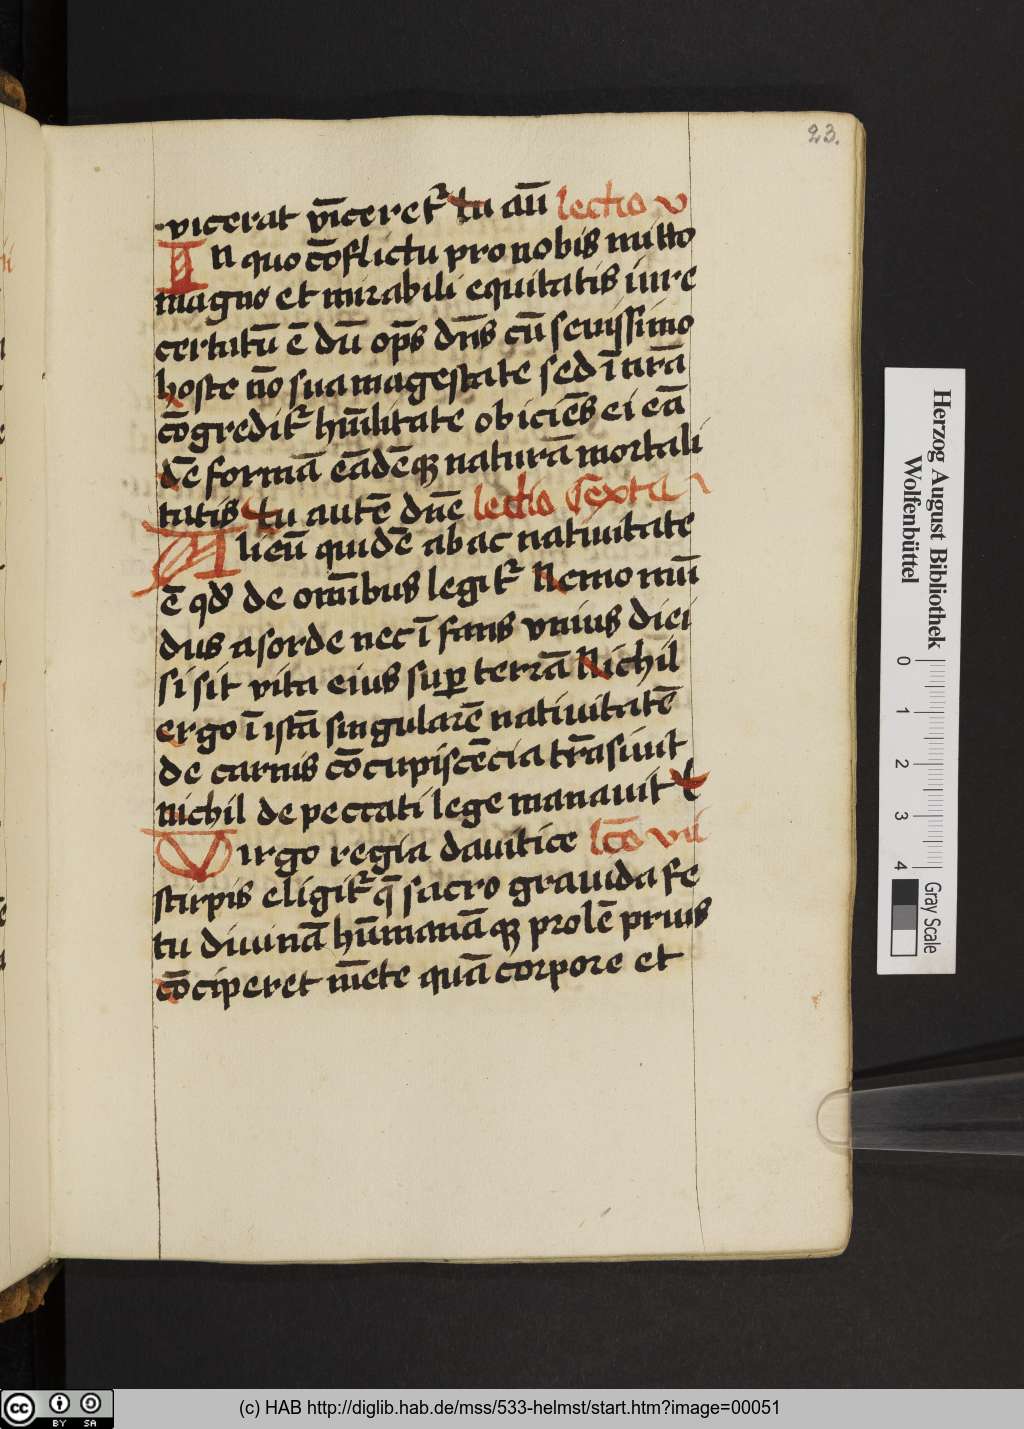 23.
vicerat vīceret᷑ tu aū lectio v
In quo cōflictu pro nobis mitto
magno et mirabili equitatis iure
certatū ē dū op̄s dn̄s cū seuissimo
hoste nō sua magestate sed ī nr̄a
cōgredit᷑ hūilitate obiciēs ei eā
dē formā eādēqꝫ naturā mortali
tatis tu autē dn̄e lectio Sexta
Alieū quidē ab ac natiuitate
ē qd̄ de om̄ibus legit᷑ Nemo mū
dus a sorde nec īfans vnius diei
si sit vita eius suꝑ terrā Nichil
ergo ī istā singularē natiuitatē
de carnis cōcupiscēcia trāsiuit
nichil de peccati lege manauit t
Virgo regia dauitice lc̄o vii
stirpis eligit᷑ q̄ sacro grauida fe
tu diuinā hūmanāqꝫ prolē prius
cōciperet mēte quā corpore et
Herzog August Bibliothek
Wolfenbüttel
0 1 2 3 4
Gray Scale
cc BY SA
(c) HAB http://diglib.hab.de/mss/533-helmst/start.htm?image=00051